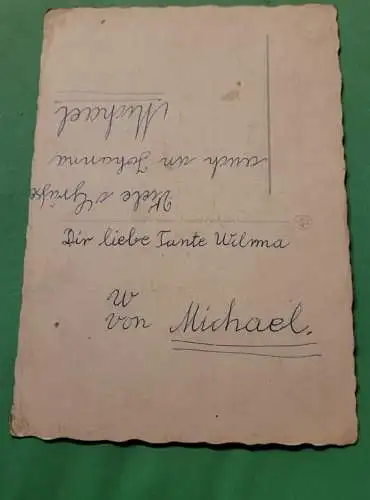 Dir liebe Tante Wilma
W
von Michael.
Viele Grüße
auch an Johanna
Michael